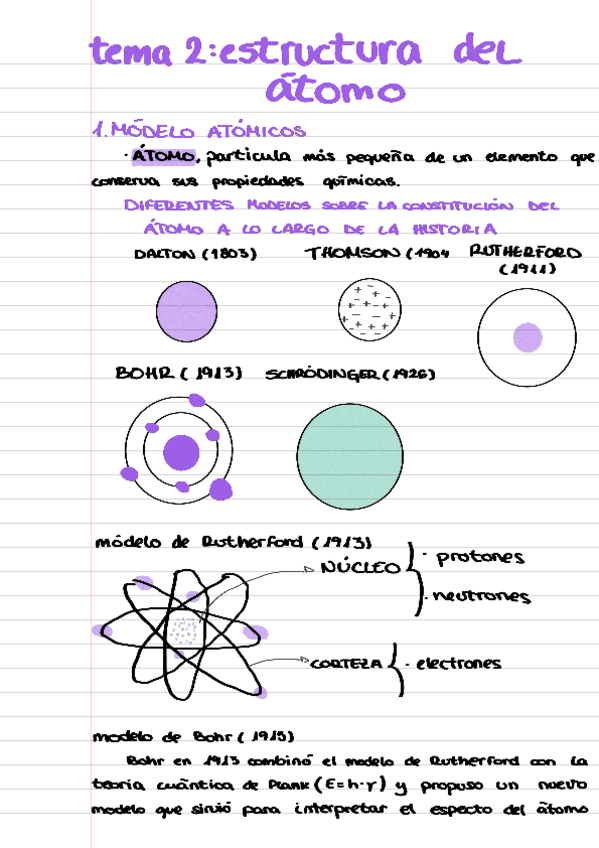 tema 2: estructura del
átomo
1. MÓDELO ATÓMICOS
· ÁTOMO, particula más pequeña de un elemento que
conserva sus propiedades químicas.
DIFERENTES MODELOS SOBRE LA CONSTITUCIÓN DEL
ÁTOMO A LO LARGO DE LA HISTORIA
DALTON (1803) THOMSON (1904 RUTHERFORD
(1911)
BOHR (1913) SCHRÖDINGER (1926)
módelo de Rutherford (1913)
· protones
NÚCLEO
· neutrones
CORTEZA · electrones
modelo de Bohr (1913)
Bohr en 1913 combinó el modelo de Rutherford con la
teoría cuántica de Plank (E=h·γ) y propuso un nuevo
modelo que sirvió para interpretar el especto del átomo